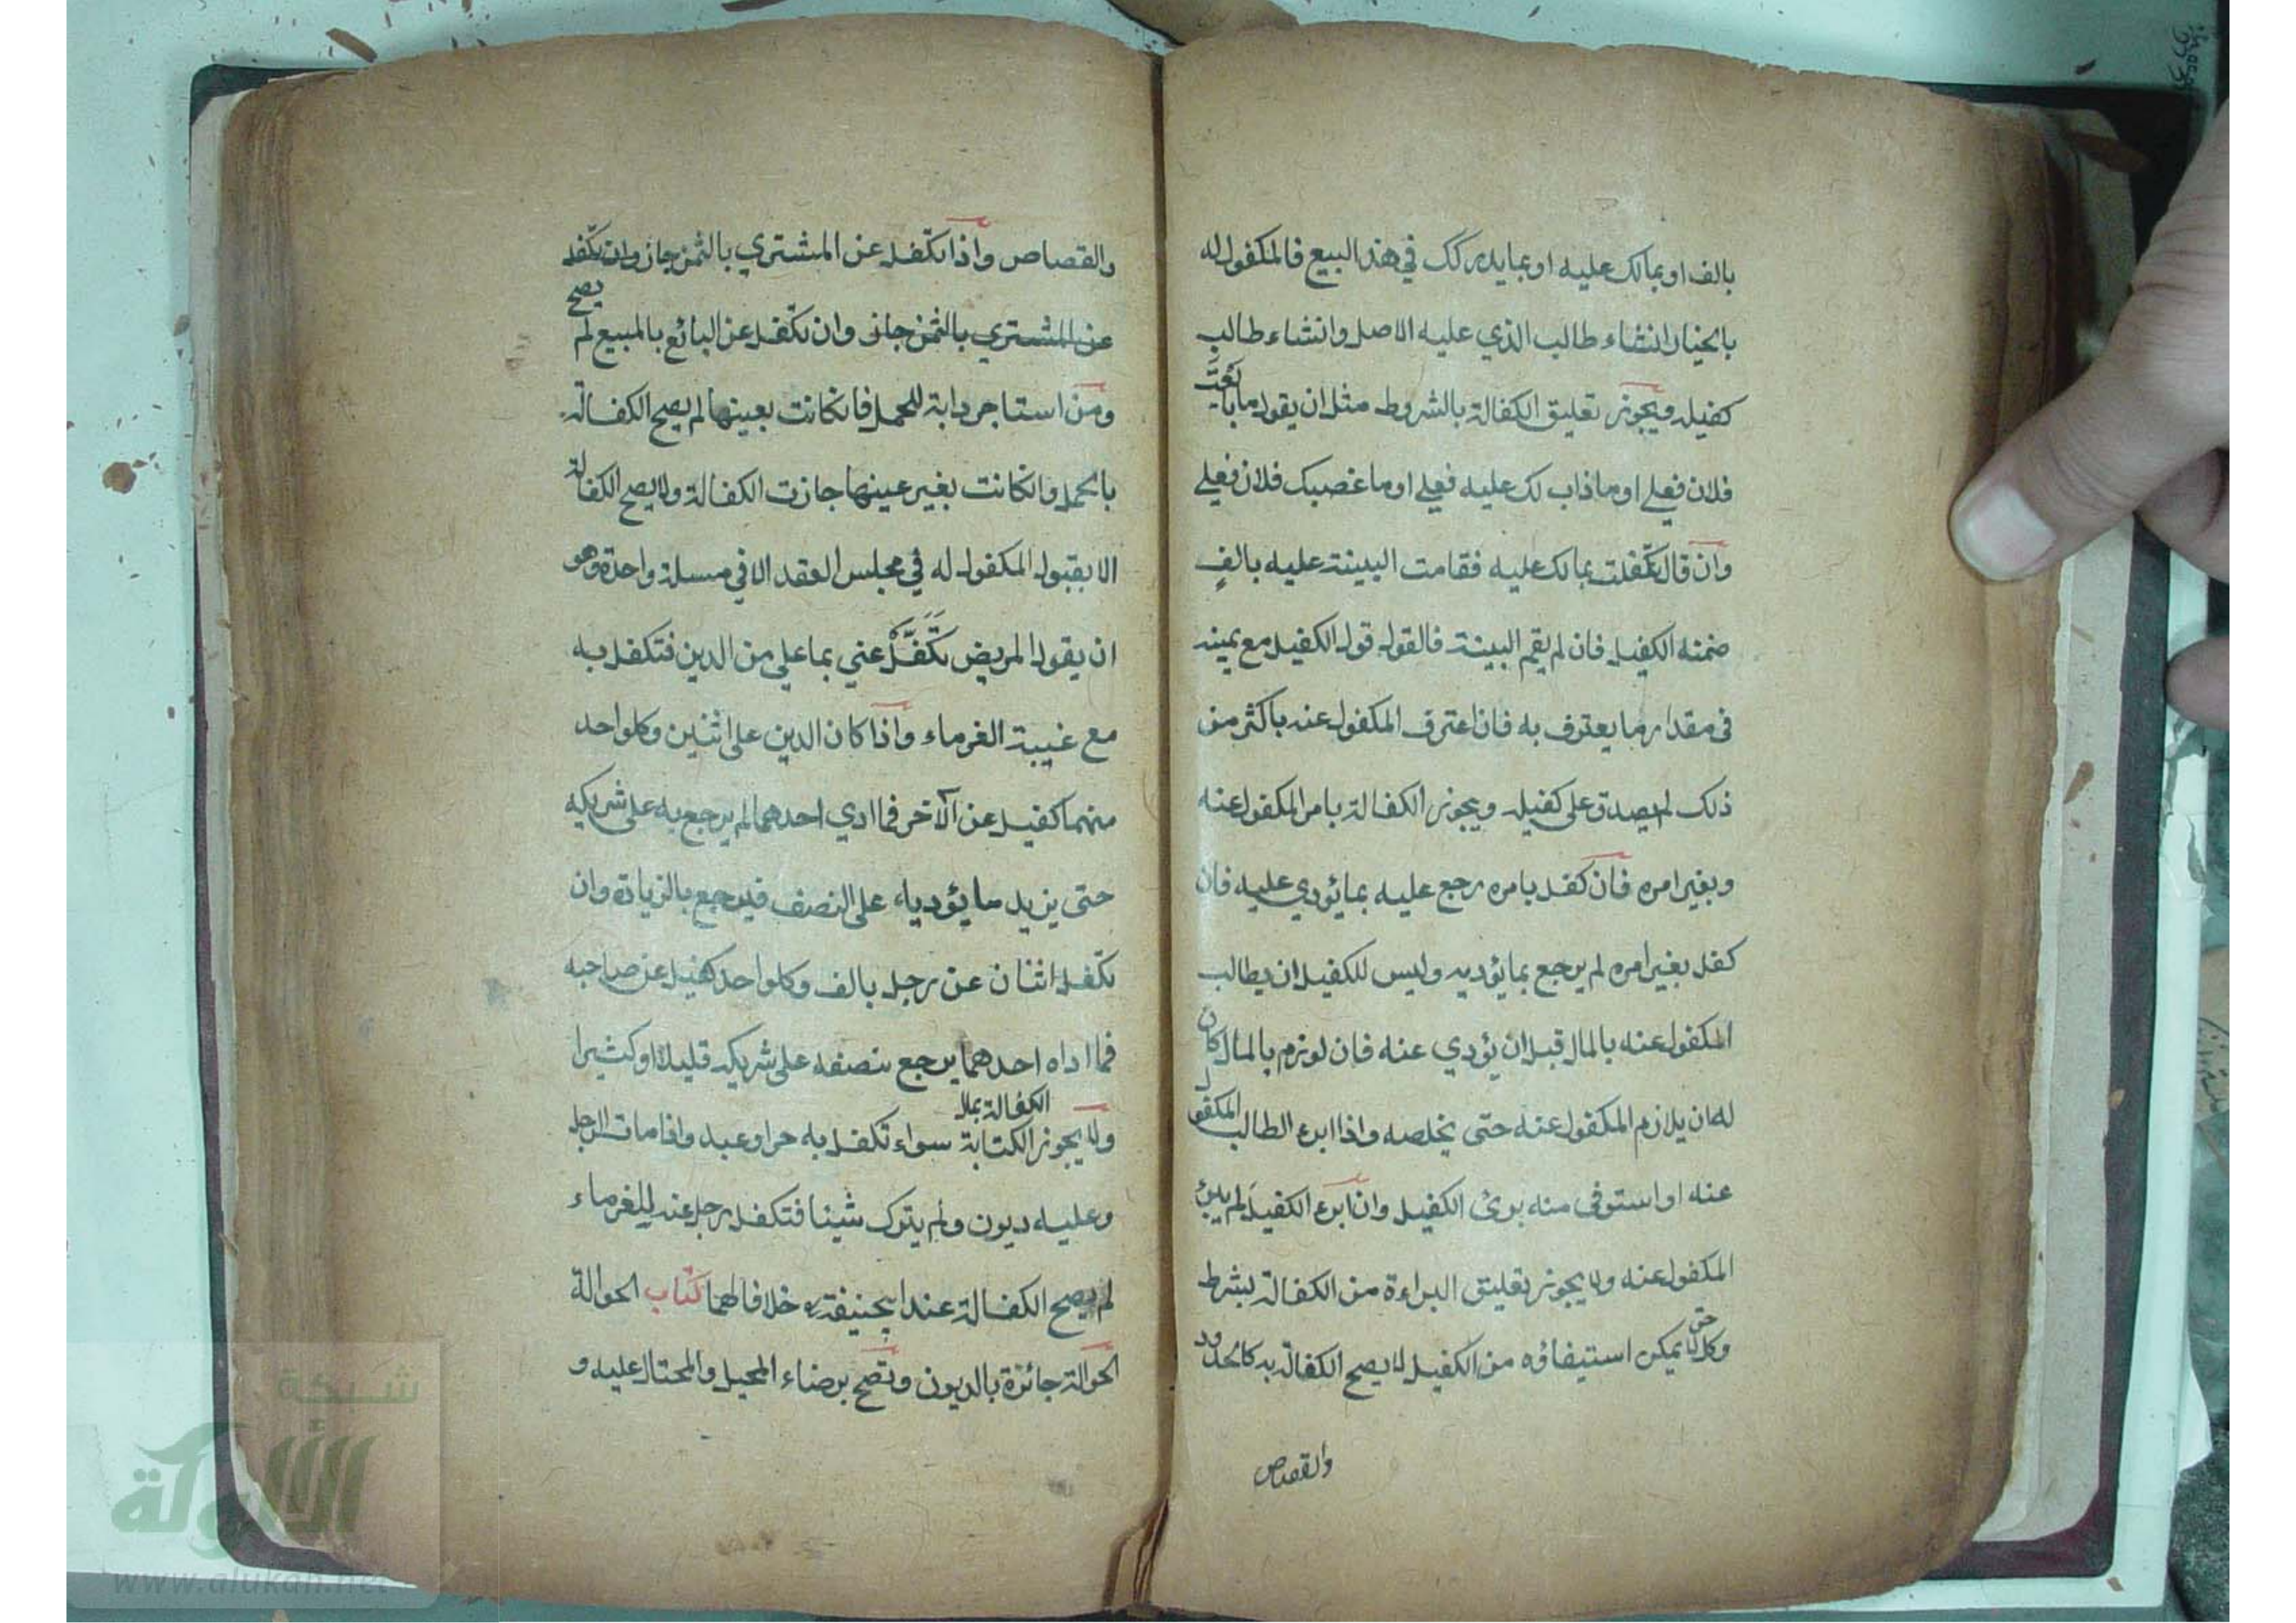 بالف او بمالك عليه او بما يدركك في هذا البيع فالمكفول له
بالخيار انشاء طالب الذي عليه الاصل وانشاء طالب
كفيله ويجوز تعليق الكفالة بالشروط مثل ان يقول ما بايعت
فلان فعلي او ما ذاب لك عليه فعلي او ما غصبك فلان فعلي
وان قال تكفلت بمالك عليه فقامت البينة عليه بالفٍ
ضمنه الكفيل فان لم يقم البينة فالقول قول الكفيل مع يمينه
في مقدار ما يعترف به فان اعترف المكفول عنه باكثر من
ذلك لم يصدق على كفيله ويجوز الكفالة بامر المكفول عنه
وبغير امره فان كفل بامره رجع عليه بما يؤدي عليه فان
كفل بغير امره لم يرجع بما يؤديه وليس للكفيل ان يطالب
المكفول عنه بالمال قبل ان يؤدي عنه فان لوزم بالمال كان
له ان يلازم المكفول عنه حتى يخلصه واذا ابرء الطالب المكفو
عنه او استوفى منه برئ الكفيل وان ابرء الكفيل لم يبرئ
المكفول عنه ولا يجوز تعليق البراءة من الكفالة بشرط
وكل حق لا يمكن استيفاؤه من الكفيل لا يصح الكفالة به كالحدود
والقصاص
والقصاص واذا تكفل عن المشتري بالثمن جاز وان تكفل
عن المشتري بالثمن جاز وان تكفل عن البائع بالمبيع لم يصح
ومن استاجر دابة للحمل فانكانت بعينها لم يصح الكفالة
بالحمل وانكانت بغير عينها جازت الكفالة ولا يصح الكفالة
الا بقبول المكفول له في مجلس العقد الا في مسلة واحدة وهو
ان يقول المريض تَكَفَّلْ عني بما علي من الدين فتكفل به
مع غيبة الغرماء واذا كان الدين على اثنين وكلواحد
منهما كفيل عن الآخر فما ادي احدهما لم يرجع به على شريكه
حتى يزيد ما يؤدياه على النصف فيرجع بالزيادة وان
تكفل اثنان عن رجل بالف وكلواحد كفيل عن صاحبه
فما اداه احدهما يرجع بنصفه على شريكه قليلا او كثيرا
ولا يجوز الكفالة بمال الكتابة سواء تكفل به حر او عبد واذا مات الرجل
وعليه ديون ولم يترك شيئا فتكفل رجل عنه للغرماء
لم يصح الكفالة عند ابيحنيفة خلافا لهما كتاب الحوالة
الحوالة جائزة بالديون وتصح برضاء المحيل والمحتال عليه و
شبكة
الألوكة
www.alukah.net